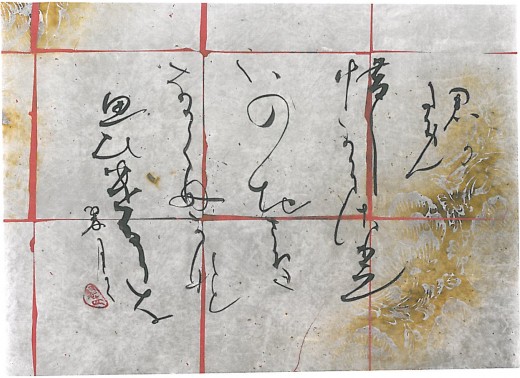 君か
ため
惜し
からさりし
いのち
さへ
なかく毋かなと
思ひけるかな
翠月